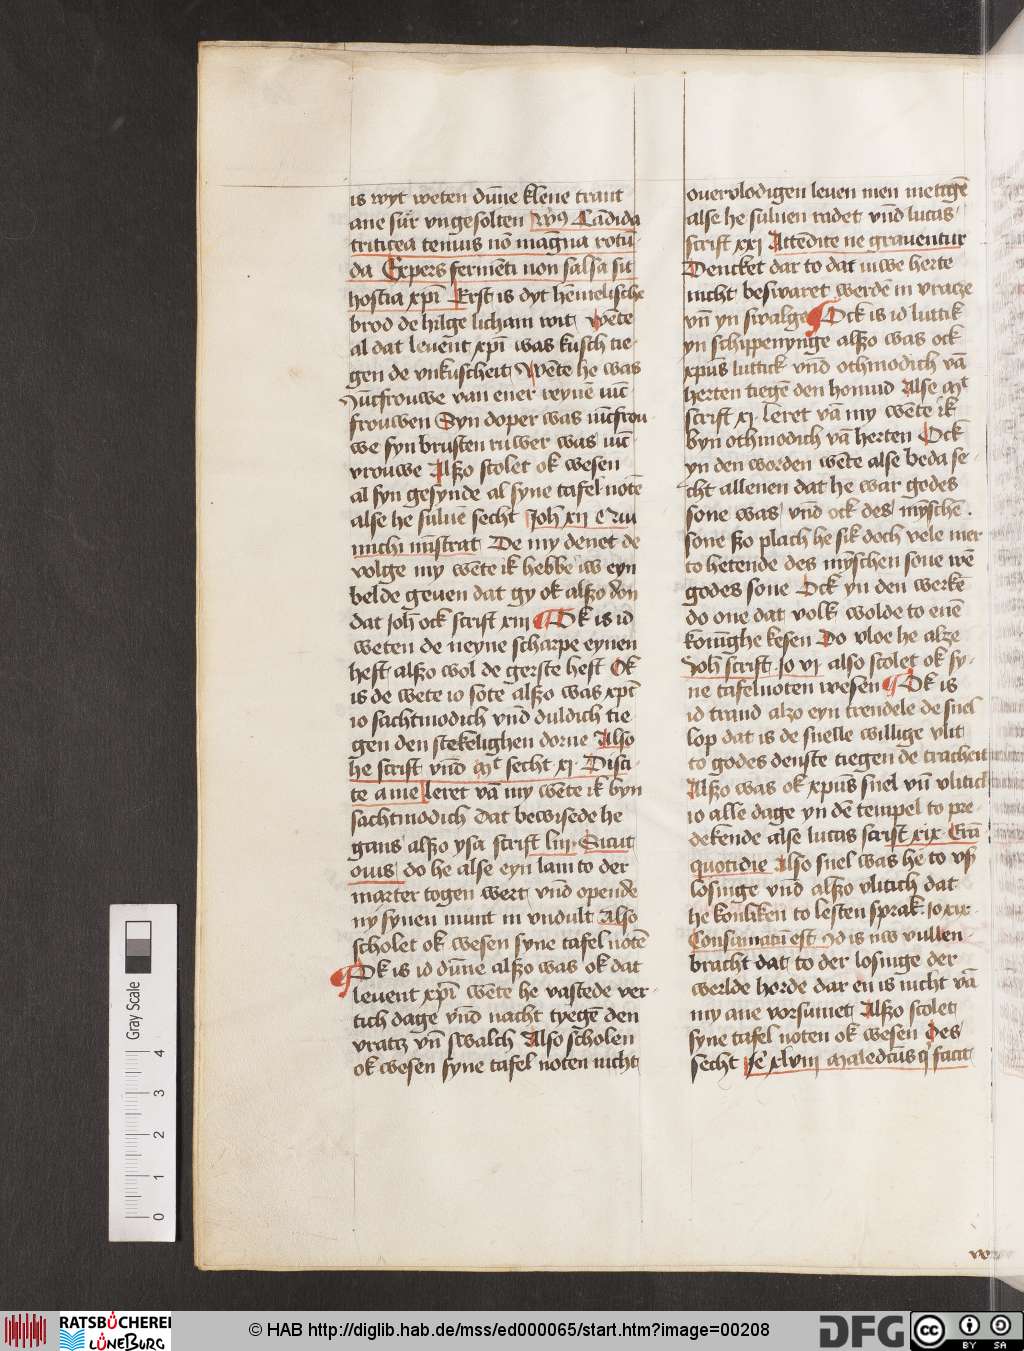 is wyt weten du̅ne klene trant
ane sur vngesolten Candida
triticea tenuis no̅ magna rotu̅
da Expers ferme̅ti non salsa sit
hostia xpi̅ Erst is dyt he̅melische
brod de hilge licham wit we̅te
al dat leuent xpi̅ was kusch tie
gen de vnkuscheit We̅te he was
Ju̅cfrouwe van ener reyne̅ iu̅c
frouwen Syn doper was iu̅cfrou
we syn brusten ruwer was iu̅c
vrouwe Alßo scolet ok wesen
al syn gesynde al syne tafel note̅
alse he suluē secht Joh̅ xii
michi mi̅strat De my denet de
volge my we̅te ik hebbe iw eyn
belde geuen dat gy ok alßo don
dat joh̅ ock scrift xiii Ok is id
weten de neyne scharpe eynen
heft alßo wol de gerste heft Ok
is de wete so sote alßo was xp̅c
so sachtmodich vn̅d duldich tie
gen den stekelighen dorne Also
he scrift vn̅d mt secht xi Disci
te a me leret va̅ my we̅te ik byn
sachtmodich dat bewisede he
gans alßo ysa scrift liii Sicut
ouis do he alse eyn lam to der
marter togen wert vn̅d opende
ny synen munt in vndult Also
scholet ok wesen syne tafel note̅
Ok is id du̅ne alßo was ok dat
leuent xpi̅ we̅te he vastede ver
tich dage vn̅d nacht tyege̅ den
vratz vn̅ swalch Also scholen
ok wesen syne tafel noten nicht
ouervlodigen leuen men metige̅
alse he suluen radet vn̅d lucas
scrift xxi Atte̅dite ne grauentur
Dencket dar to dat iuwe herte
nicht beswaret werde̅ in vratze
vn̅ yn swalge Ock is id luttik
yn schippenynge alßo was ock
xpu̅s luttick vn̅d othmodich va̅
herten tiege̅ den homud Alse mt
scrift xi leret va̅ my we̅te ik
byn othmodich va̅ herten Ock
yn den worden we̅te alse beda se
cht allenen dat he war godes
sone was vn̅d ock des mysche̅
sone ßo plach he sik doch vele mer
to hetende des my̅schen sone we̅
godes sone Ock yn den werke̅
do one dat volk wolde to ene̅
koni̅ghe kesen Do vloe he alze
Joh̅ scrift io vi also scolet ok sy
ne tafelnoten wesen Ok is
id trand alzo eyn trendele de snel
lop dat is de snelle willige vlit
to godes denste tiegen de tracheit
Alßo was ok xpu̅s snel vn̅ vlitich
io alle dage yn de̅ tempel to pre
dekende alse lucas scrift xix Era̅
quotidie Also snel was he to vs̅
losinge vn̅d alßo vlitich dat
he konliken to lesten sprak io xix
Consu̅matu̅ est Id is nw vullen
bracht dat to der losinge der
werlde horde dar en is nicht va̅
my ane vorsumet Alßo scolet
syne tafel noten ok wesen Des
secht je xlviii Maledictus q̅ facit
Gray Scale
0 1 2 3 4
RATSBÜCHEREI LÜNEBURG
© HAB http://diglib.hab.de/mss/ed000065/start.htm?image=00208
DFG
cc BY SA